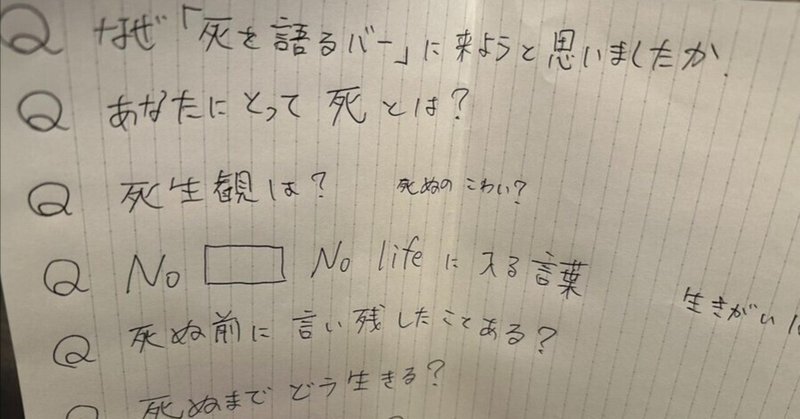 Q なぜ「死を語るバー」に来ようと思いましたか
Q あなたにとって死とは?
Q 死生観は? 死ぬのこわい?
Q No □ No lifeに入る言葉
生きがい
Q 死ぬ前に言い残したことある?
Q 死ぬまでどう生きる?